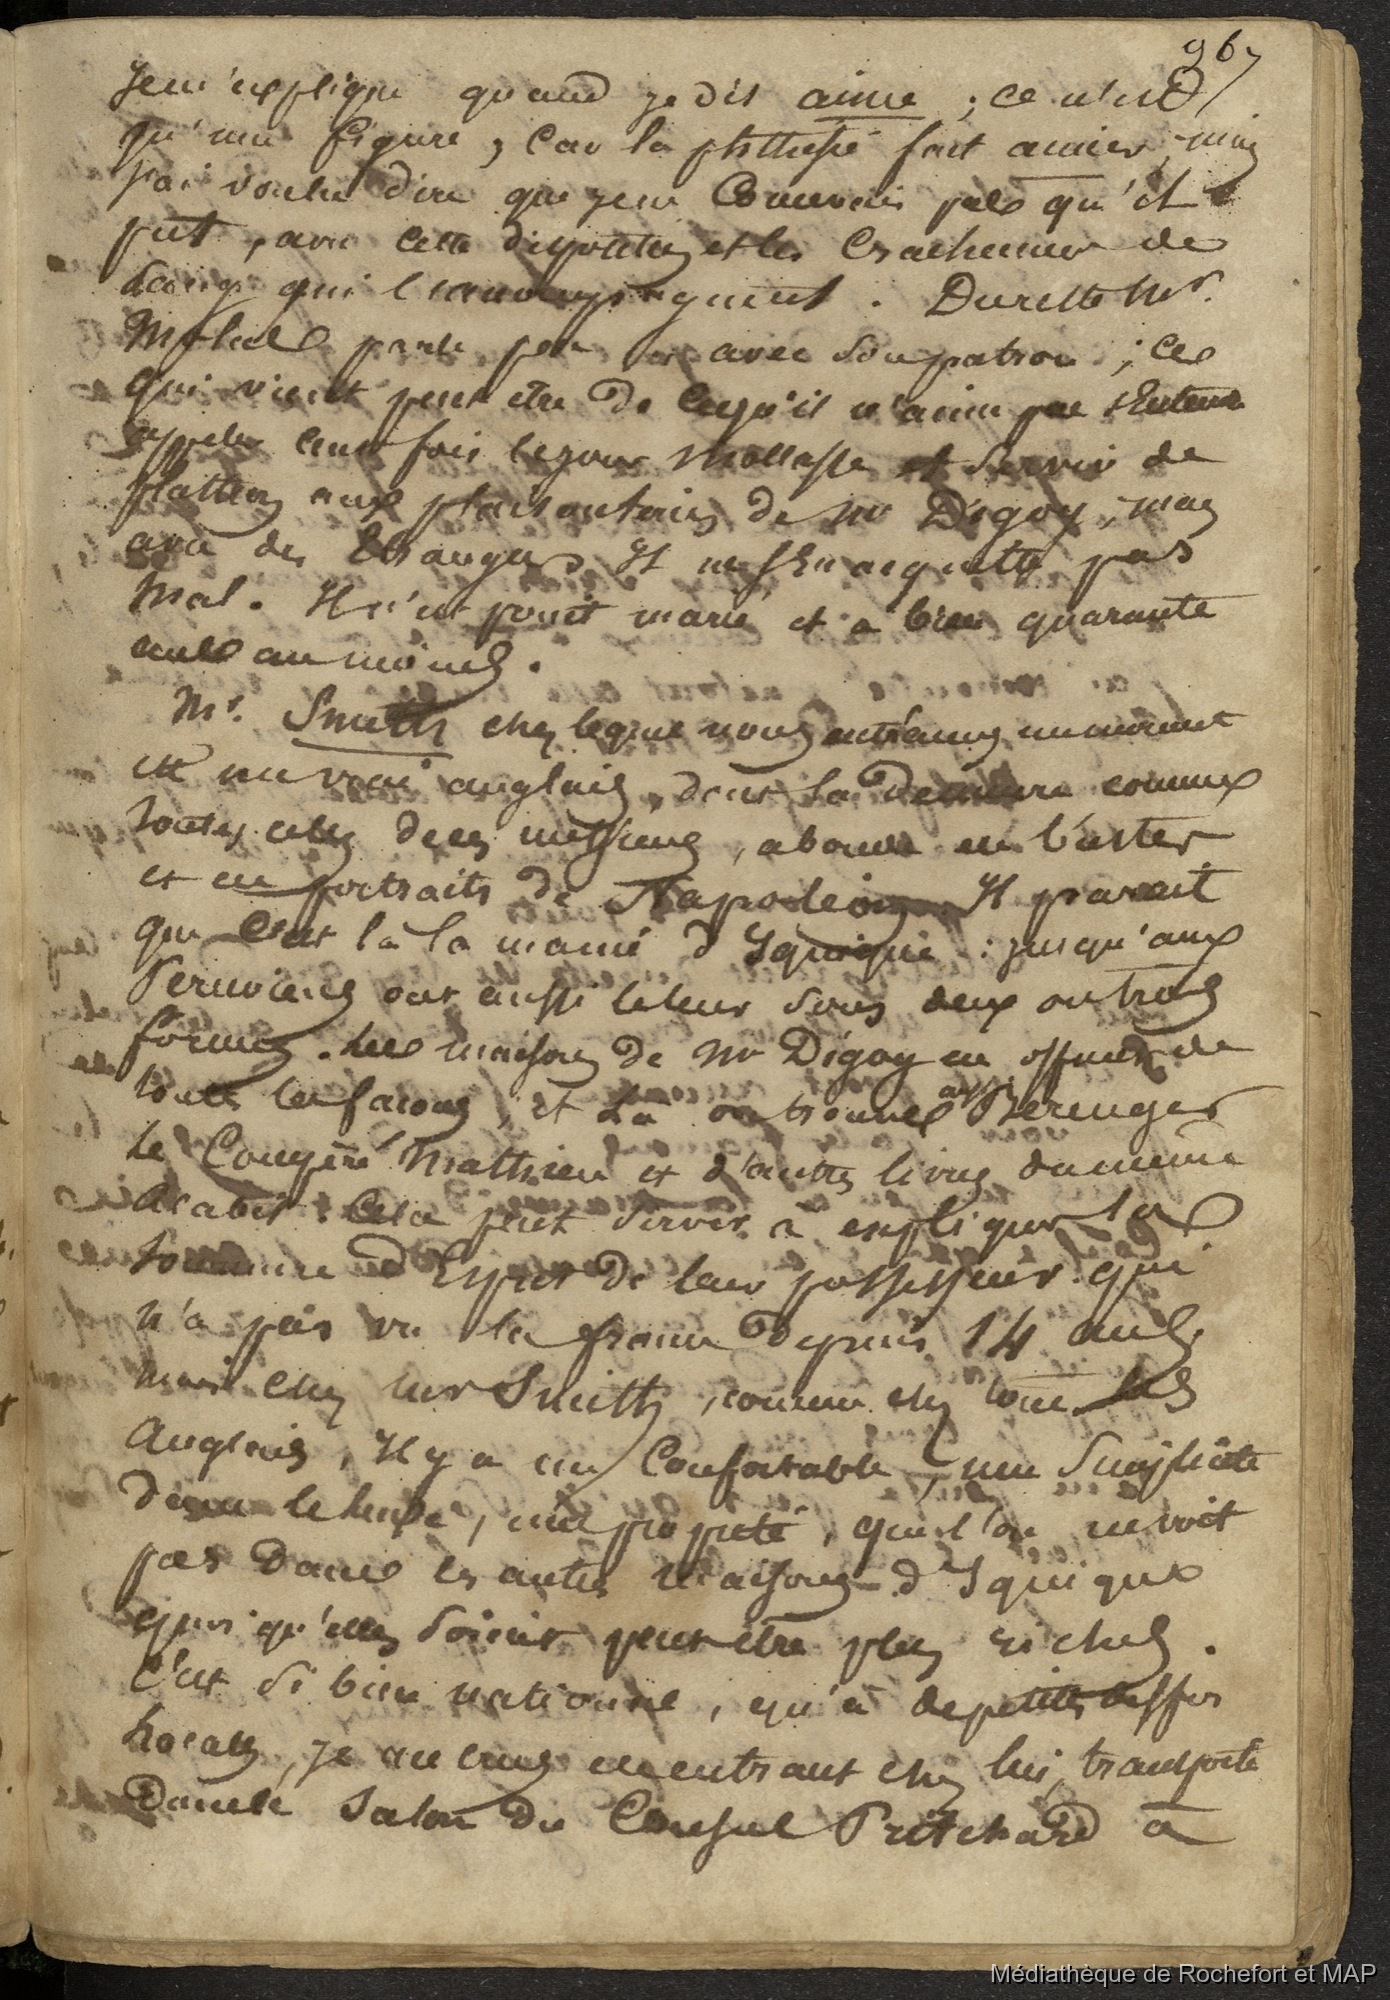 967
Je m'explique quand je dis aimer ; ce n'est
qu'une figure, car la phthisie fait aimer, mais
j'ai voulu dire que je ne concevais pas qu'il
put, avec cette disposition et les crachemens de
sang qui l'accompagnent. Du reste Mr.
parle peu avec son patron ; ce
qui vient peut être de ce qu'il n'aime pas s'entendre
appeler cent fois le jour Mollasse et servir de
aux plaisanteries de Mr Digoy, mais
avec des étrangers il ne s'en acquitte pas
mal. Il n'est point marié et a bien quarante
ans au moins.
Mr. Smith chez lequel nous entrâmes un moment
est un vrai anglais, dont la demeure comme
toutes celles de ces messieurs, abonde en bustes
et en portraits de Napoléon. Il parait
que c'est là la manie d'Iquique : jusqu'aux
Péruviens ont aussi le leur sous deux ou trois
formes. Les maisons de Mr Digoy en offrent de
toutes les façons, et là on trouve aussi Berenger
le Compère Mathieu et d'autres livres du même
acabit. Cela peut servir à expliquer la
tournure d'Esprit de leur possesseur qui
n'a pas vu la france depuis 14 ans.
Mais chez Mr Smith, comme chez tous les
Anglais, il y a un Confortable, une simplicité
dans le luxe, une propreté, que l'on ne voit
pas dans les autres maisons d'Iquique
quoi qu'elles soient peut être plus riches.
C'est si bien national, qu'à de petites
locales, je me crus en entrant chez lui, transporté
dans le salon du Consul Pritchard à
Médiathèque de Rochefort et MAP